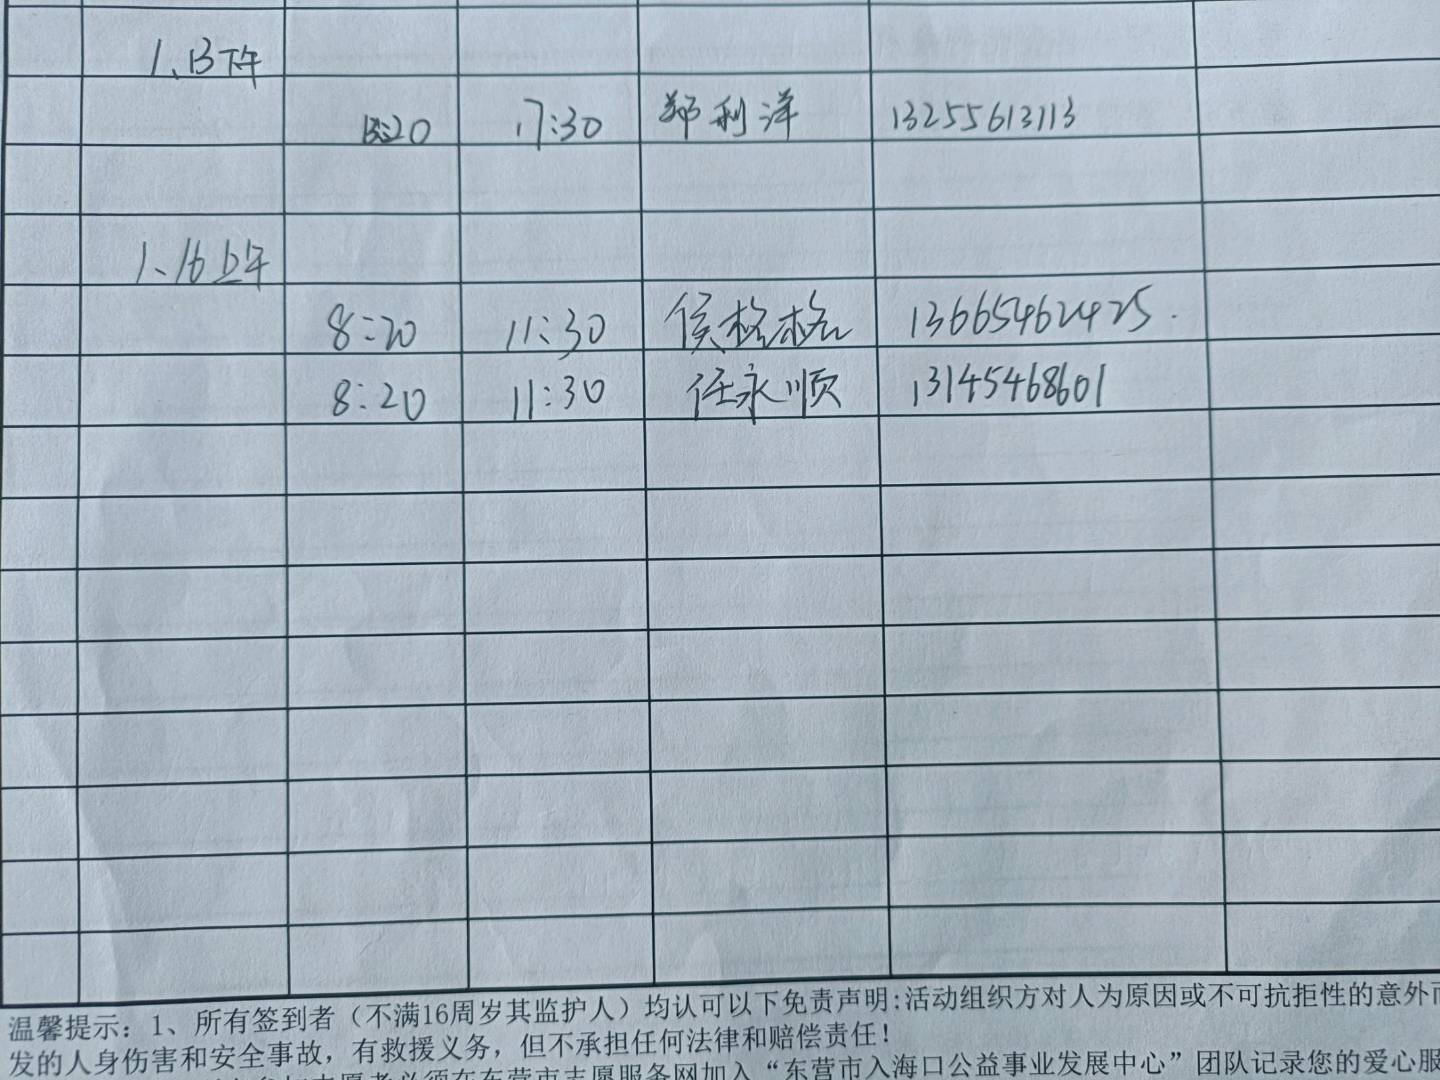 1、13下午
17:30 郑利洋 13255613113
1、16上午
8:20 11:30 侯格格 13665462425
8:20 11:30 任永顺 13145468601
温馨提示：1、所有签到者（不满16周岁其监护人）均认可以下免责声明:活动组织方对人为原因或不可抗拒性的意外而
发的人身伤害和安全事故，有救援义务，但不承担任何法律和赔偿责任！
志愿者必须在东营市志愿服务网加入“东营市入海口公益事业发展中心”团队记录您的爱心服